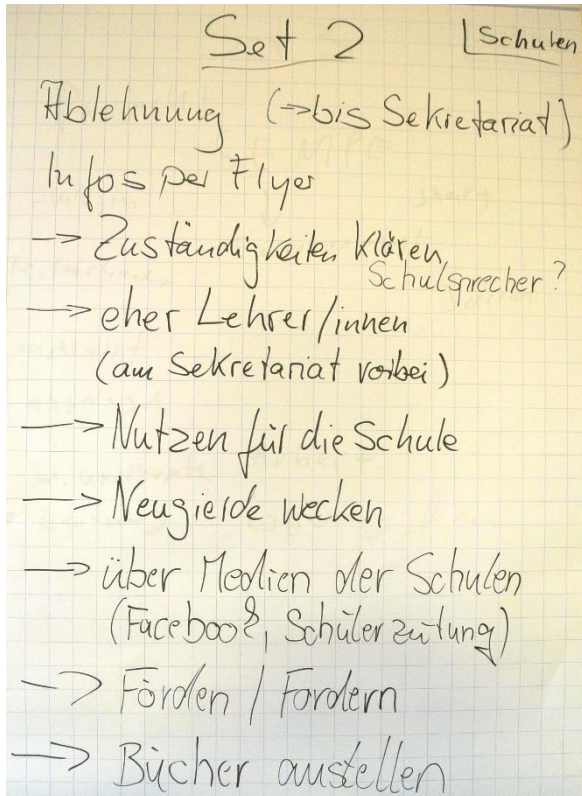 Set 2
Schulen
Ablehnung (→bis Sekretariat)
Infos per Flyer
→ Zuständigkeiten klären
Schulsprecher?
→ eher Lehrer/innen
(am Sekretariat vorbei)
→ Nutzen für die Schule
→ Neugierde wecken
→ über Medien der Schulen
(Facebook, Schülerzeitung)
→ Förden / Fordern
→ Bücher austellen